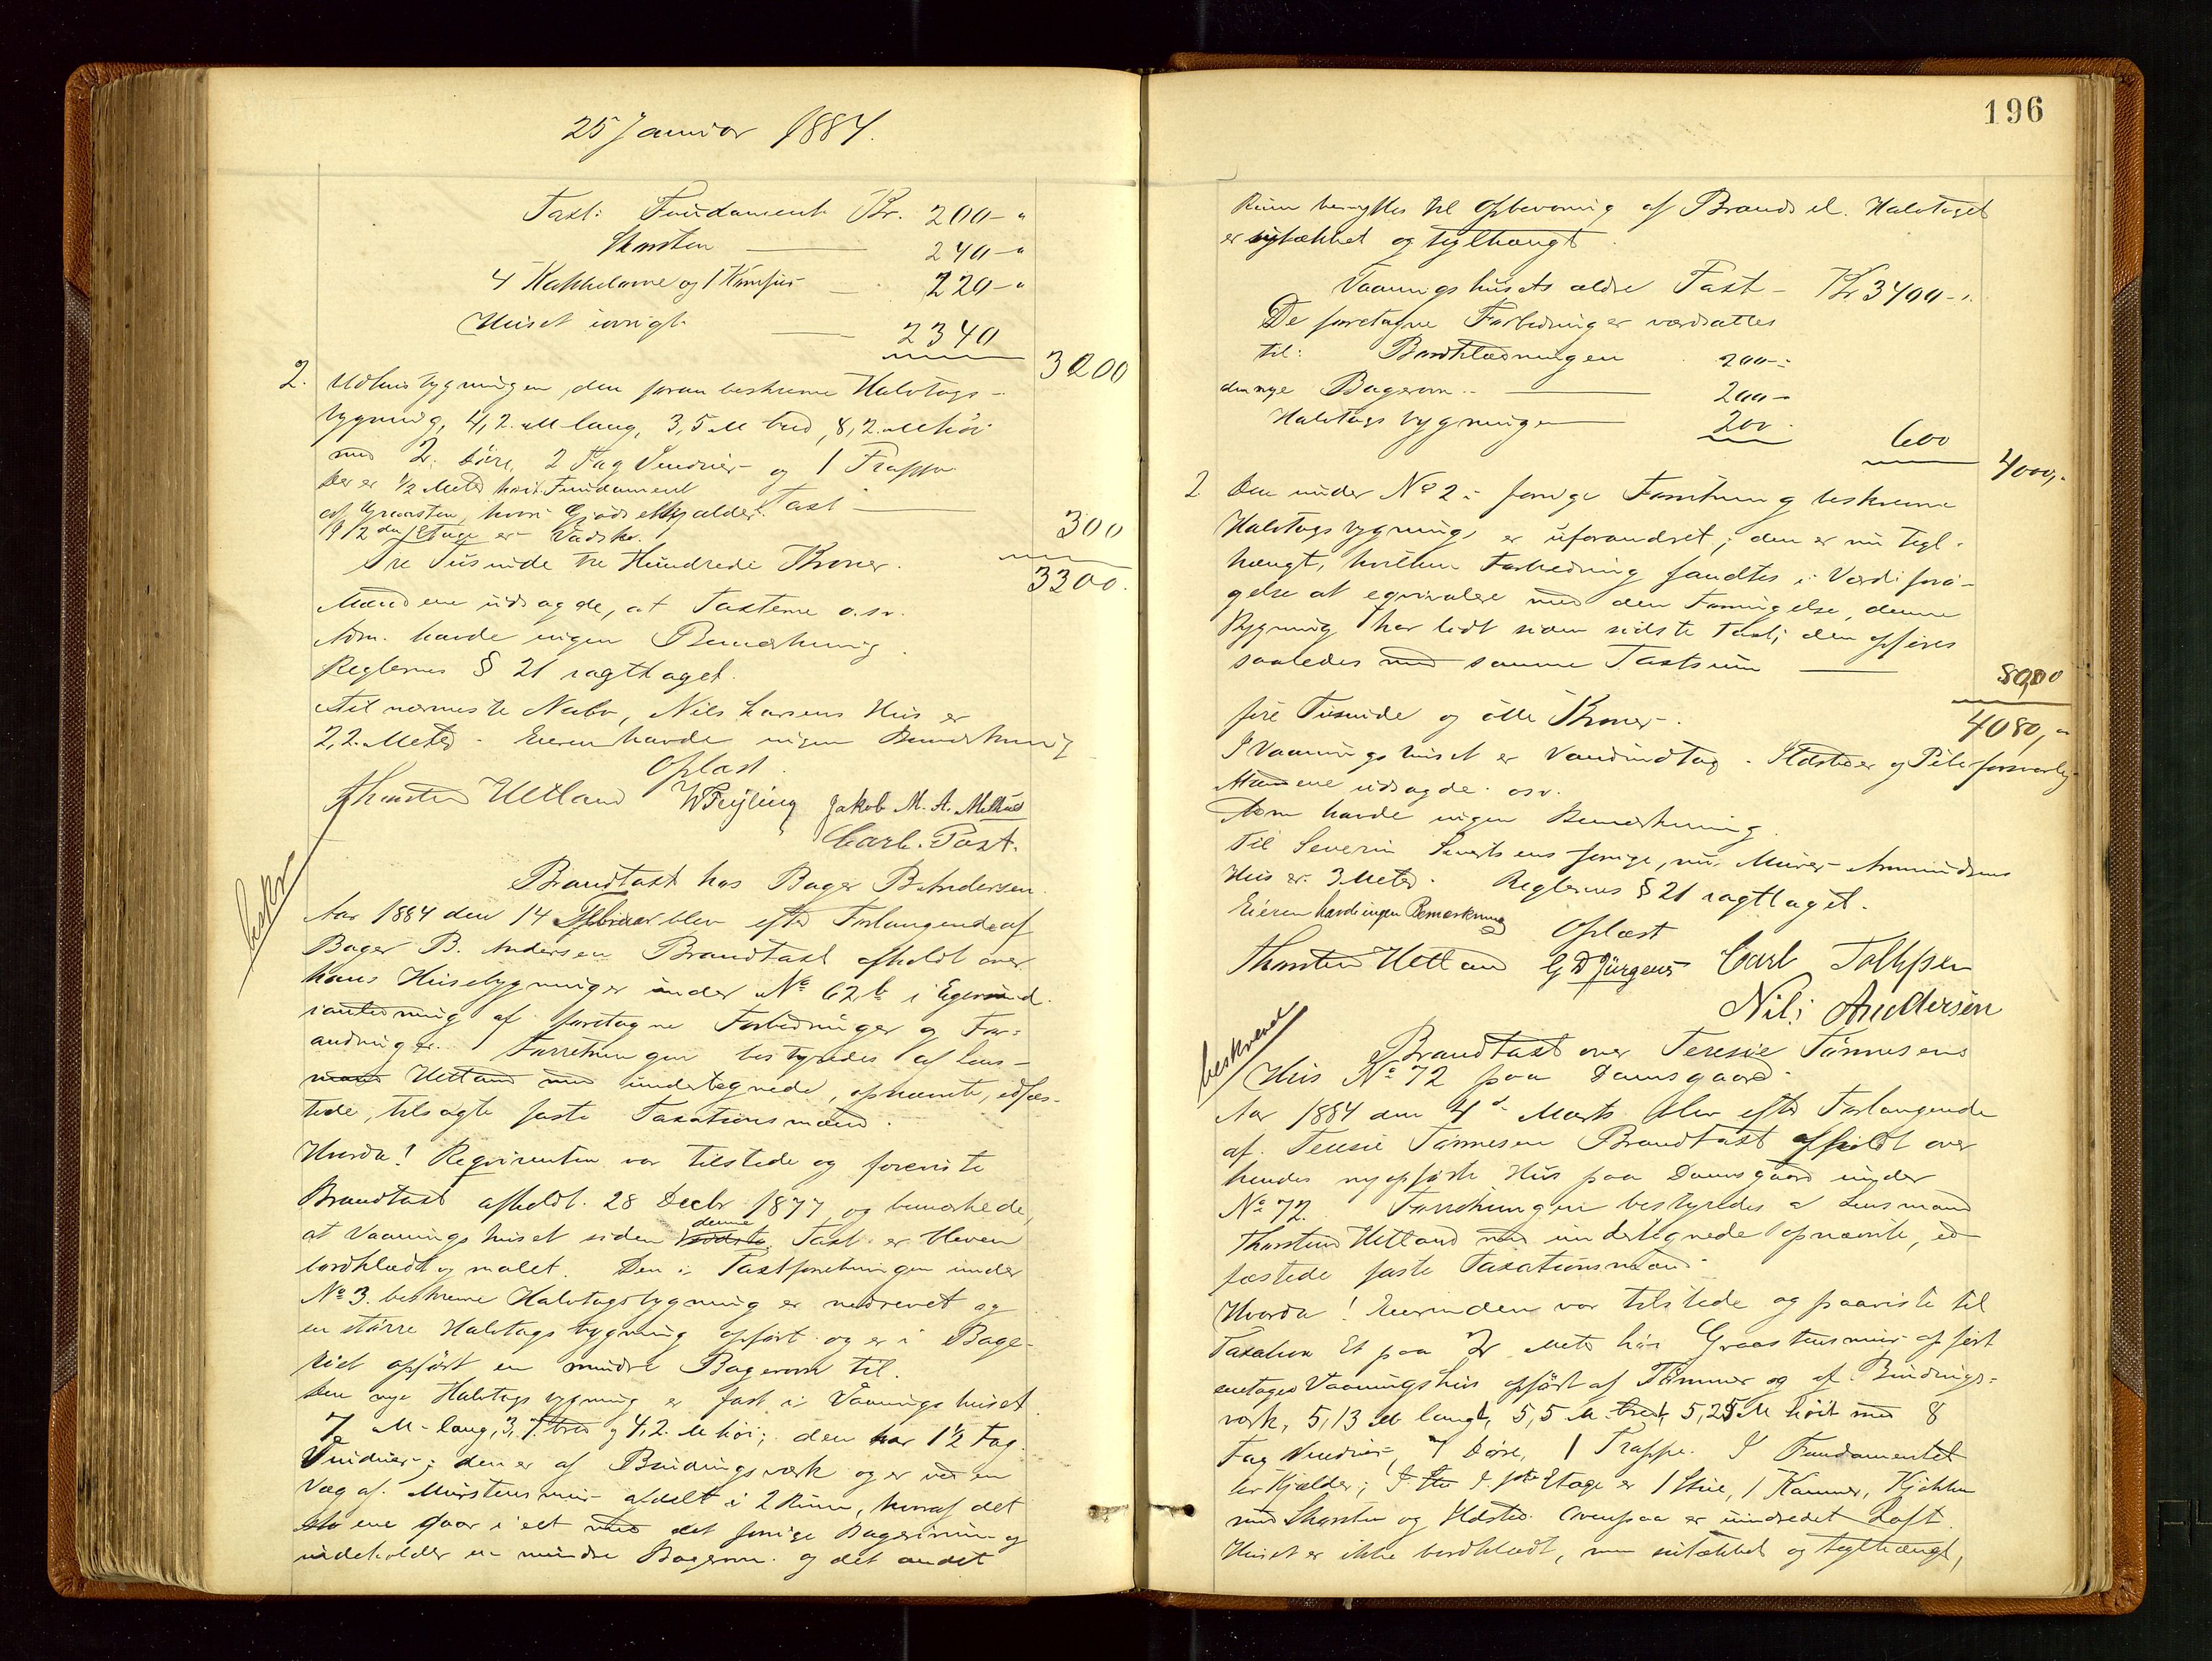 25 Januar 1884.
Taxt: Fundament Kr. 200 - "
Skorsten 240 - "
4 Kakkelovne og 1 Komfur 220 - "
Huset iøvrigt 2340
3000
2. Udhusbygningen, den foran beskrevne Halvtags-
bygning, 4,2 M lang, 3,5 M bred, 8,2 M høi
med 2 Døre, 2 Fag Vinduer og 1 Trappe
Der er 1/2 Meter høit Fundament
af Graasten, hvori Gjødselkjælder. Taxt 300
I 2den Etage er Vadsker.
Tre Tusinde tre Hundrede Kroner. 3300.
Mændene udsagde, at Taxterne o.s.v.
Adm. havde ingen Bemærkning.
Reglernes § 21 iagttaget.
Til nærmeste Nabo, Nils Larsens Hus er
2,2 Meter. Eieren havde ingen Bemærkning
Oplæst.
Thorsten Hetland W Feyling Jakob M. A.
Carl. Post.
Brandtaxt hos Bager B Andersen.
Aar 1884 den 14 Februar blev efter Forlangende af
Bager B. Andersen Brandtaxt afholdt over
hans Husebygninger under No 62b i Egersund
ianledning af foretagne Forbedringer og For-
andringer. Forretningen bestyredes af Lens-
mand Hetland med undertegnede, opnævnte, edfæs-
tede, tilsagte faste Taxationsmænd.
Hvorda! Reqvirenten var tilstede og foreviste
Brandtaxt afholdt 28 Decbr 1877 og bemærkede,
at Vaaningshuset siden denne Taxt er bleven
bordklædt og malet. Den i Taxtforretningen under
No 3 beskrevne Halvtagsbygning er nedrevet og
en større Halvtagsbygning opført og er i Bage-
riet opført en mindre Bagerovn til.
Den nye Halvtagsbygning er fast i Vaaningshuset
7 M lang, 3,7 bred og 4,2 M høi; den har 1 1/2 Fag
Vinduer; den er af Bindingsværk og er ved en
Væg af Murstensmur afdelt i 2 Rum, hvoraf det
ene gaar i et med det forrige Bagerirum og
indeholder en mindre Bagerovn og det andet
196
Rum benyttes til Opbevaring af Brændsel. Halvtaget
er sutækket og teglhængt.
Vaaningshusets ældre Taxt - Kr 3400 - "
De foretagne Forbedringer værdsattes
til: Bordklædningen 200 -
den nye Bagerovn 200 -
Halvtagsbygningen 200 600
4000,-
2 Den under No 2 i forrige Forretning beskrevne
Halvtagsbygning er uforandret; den er nu tegl-
hængt, hvilken Forbedring fandtes i Værdiforø-
gelse at eqvivalere med den Forringelse, denne
Bygning har lidt siden sidste Taxt; den opføres
saaledes med samme Taxtsum 80,00
fire Tusinde og otti Kroner. 4080,"
I Vaaningshuset er Vandindtag. Ildsteder og Piber forsvarlige
Mændene udsagde osv.
Adm havde ingen Bemærkning.
Til Severin Sivertsens forrige, nu Murer Ammundsens
Hus er 3 Meter. Reglernes § 21 iagttaget.
Eieren havde ingen Bemærkning
Oplæst
Thorsten Hetland G D Jürgens Carl
Nils Andersen
beskrevet
Brandtaxt over Teresie Tønnesens
Hus No 72 paa Damsgaard.
Aar 1884 den 4de Marts blev efter Forlangende
af Teresie Tønnesen Brandtaxt afholdt over
hendes nyopførte Hus paa Damsgaard under
No 72. Forretningen bestyredes af Lensmand
Thorsten Hetland med undertegnede opnævnte, ed-
fæstede faste Taxationsmænd.
Hvorda! Eierinden var tilstede og paaviste til
Taxation Et paa 2 Meter høi Graastensmur opført
enetages Vaaningshus opført af Tømmer og af Bindings-
værk, 5,13 M langt, 5,5 M bredt, 5,25 M høit med 8
Fag Vinduer, 7 Døre, 1 Trappe. I Fundamentet
er Kjælder; I 1ste Etage er 1 Stue, 1 Kammer, Kjøkken
med Skorsten og Ildsted. Ovenpaa er uindredet Loft.
Huset er ikke bordklædt, men sutækket og teglhængt,